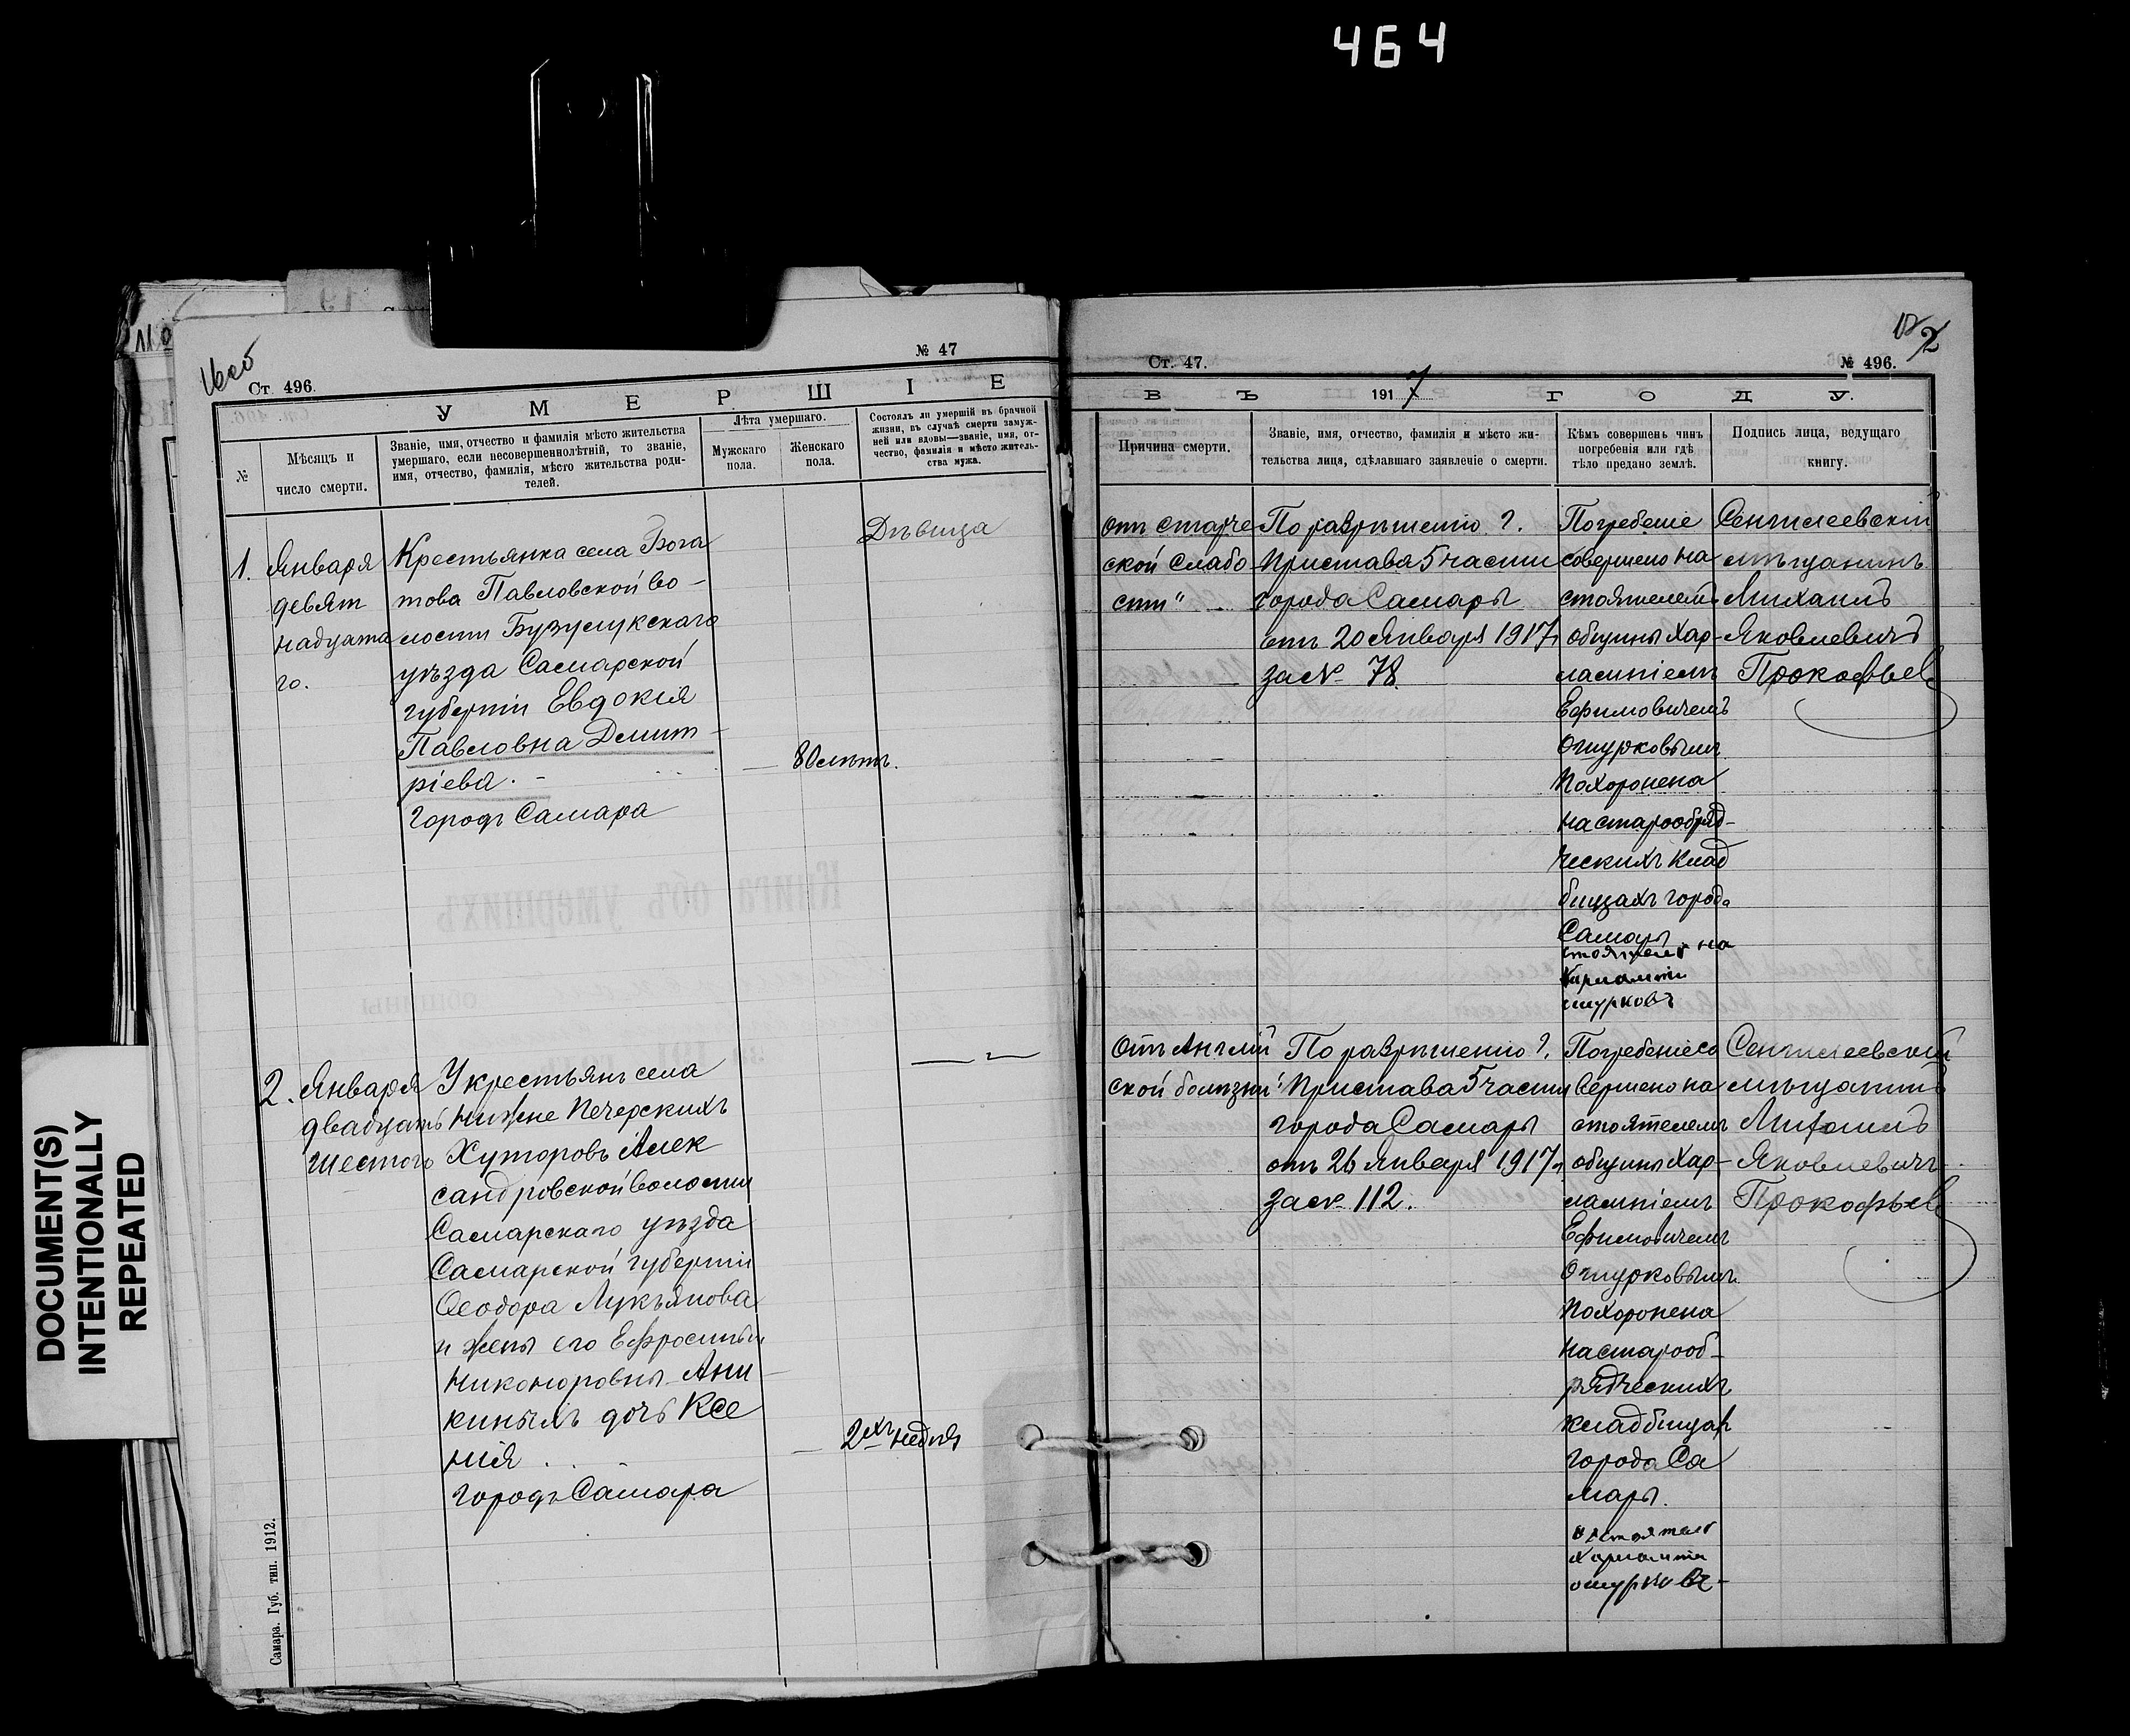 464
DOCUMENT(S)
INTENTIONALLY
REPEATED
Ст. 496.
№ 47
У М Е Р Ш І Е
№
Мѣсяцъ и
число смерти.
Званіе, имя, отчество и фамилія мѣсто жительства
умершаго, если несовершеннолѣтній, то званіе,
имя, отчество, фамилія, мѣсто жительства роди-
телей.
Лѣта умершаго.
Мужскаго
пола.
Женскаго
пола.
Состоялъ ли умершій въ брачной
жизни, въ случаѣ смерти замуж-
ней или вдовы—званіе, имя, от-
чество, фамилія и мѣсто житель-
ства мужа.
1.
Января
девят
надцата
го.
Крестьянка села Бога
това Павловской во-
лости Бузулукскаго
уѣзда Самарской
губерніи Евдокія
Павловна Дмит-
ріева.
городъ Самара
80 лѣтъ.
Дѣвица
2.
Января
двадцать
шестого
У крестьянъ села
Нижне Печерскихъ
Хуторовъ Алек
сандровской волости
Самарскаго уѣзда
Самарской губерніи
Ѳеодора Лукьянова
и жены его Ефросиньи
Никоноровны Ани-
киныхъ дочь Ксе
нія
городъ Самара
2хъ недѣль
Самара. Губ. тип. 1912.
2
Ст. 47.
№ 496.
В Ъ 1917 Г О Д У.
Причина смерти.
Званіе, имя, отчество, фамилія и мѣсто жи-
тельства лица, сдѣлавшаго заявленіе о смерти.
Кѣмъ совершенъ чинъ
погребенія или гдѣ
тѣло предано землѣ.
Подпись лица, ведущаго
книгу.
отъ старче
ской слабо
сти
По разрѣшенію г.
Пристава 5 части
города Самары
отъ 20 Января 1917г
за № 78.
Погребеніе
совершено на
стоятелемъ
общины Хар-
лампіемъ
Ефимовичемъ
Ошурковымъ
Похоронена
на старообряд-
ческихъ клад
бищахъ города
Самары
настоятель
Харлампи
ошурковъ
Сенгилеевскій
мѣщанинъ
Михаилъ
Яковлевичъ
Прокофьев
Отъ Англій
ской болѣзни
По разрѣшенію г.
Пристава 5 части
города Самары
отъ 26 Января 1917г
за № 112.
Погребеніе со
вершено на
стоятелемъ
общины Хар-
лампіемъ
Ефимовичемъ
Ошурковымъ
Похоронена
на старооб-
рядческихъ
кладбищах
города Са
мары.
настоятель
Харлампи
ошурковъ
Сенгилеевский
мѣщанинъ
Михаилъ
Яковлевичъ
Прокофьев